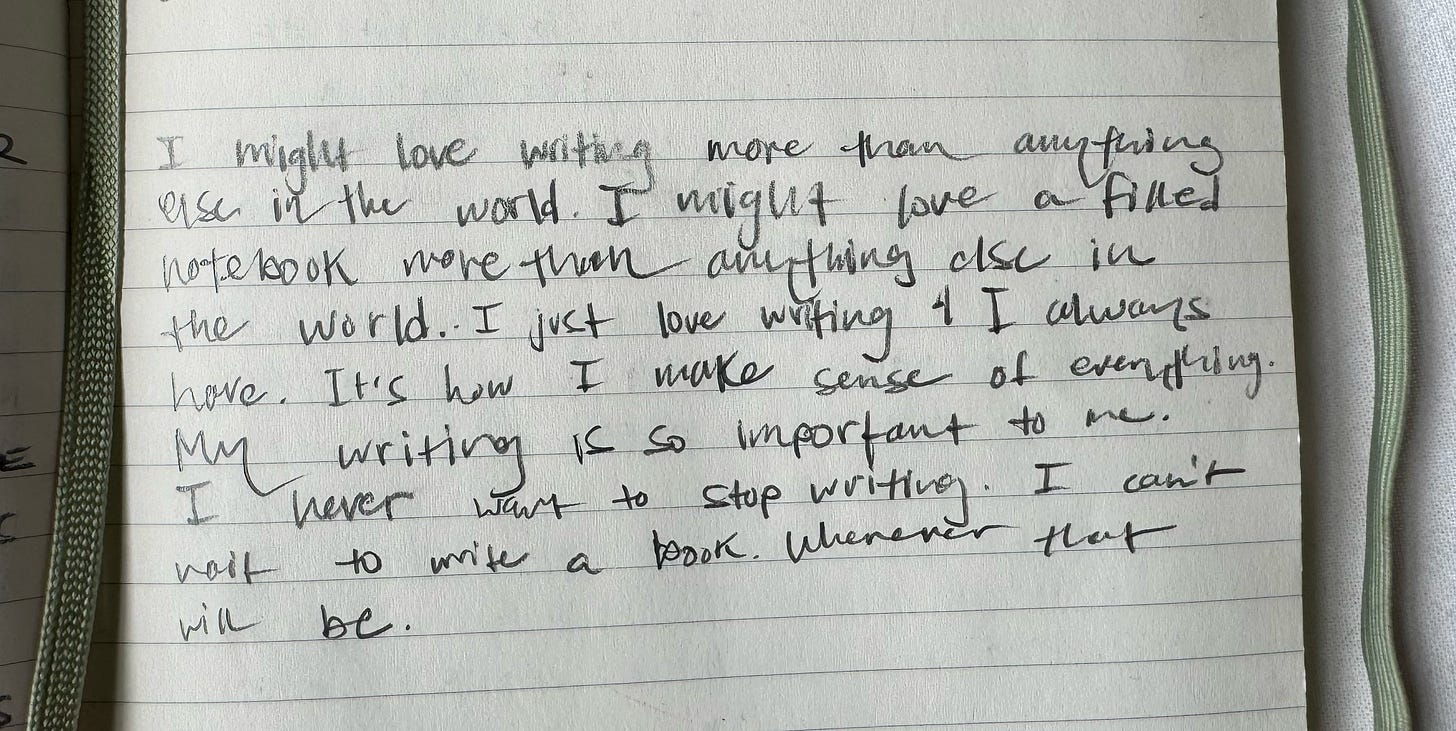 I might love writing more than anything
else in the world. I might love a filled
notebook more than anything else in
the world.. I just love writing & I always
have. It's how I make sense of everything.
My writing is so important to me.
I never want to stop writing. I can't
wait to write a book. Whenever that
will be.